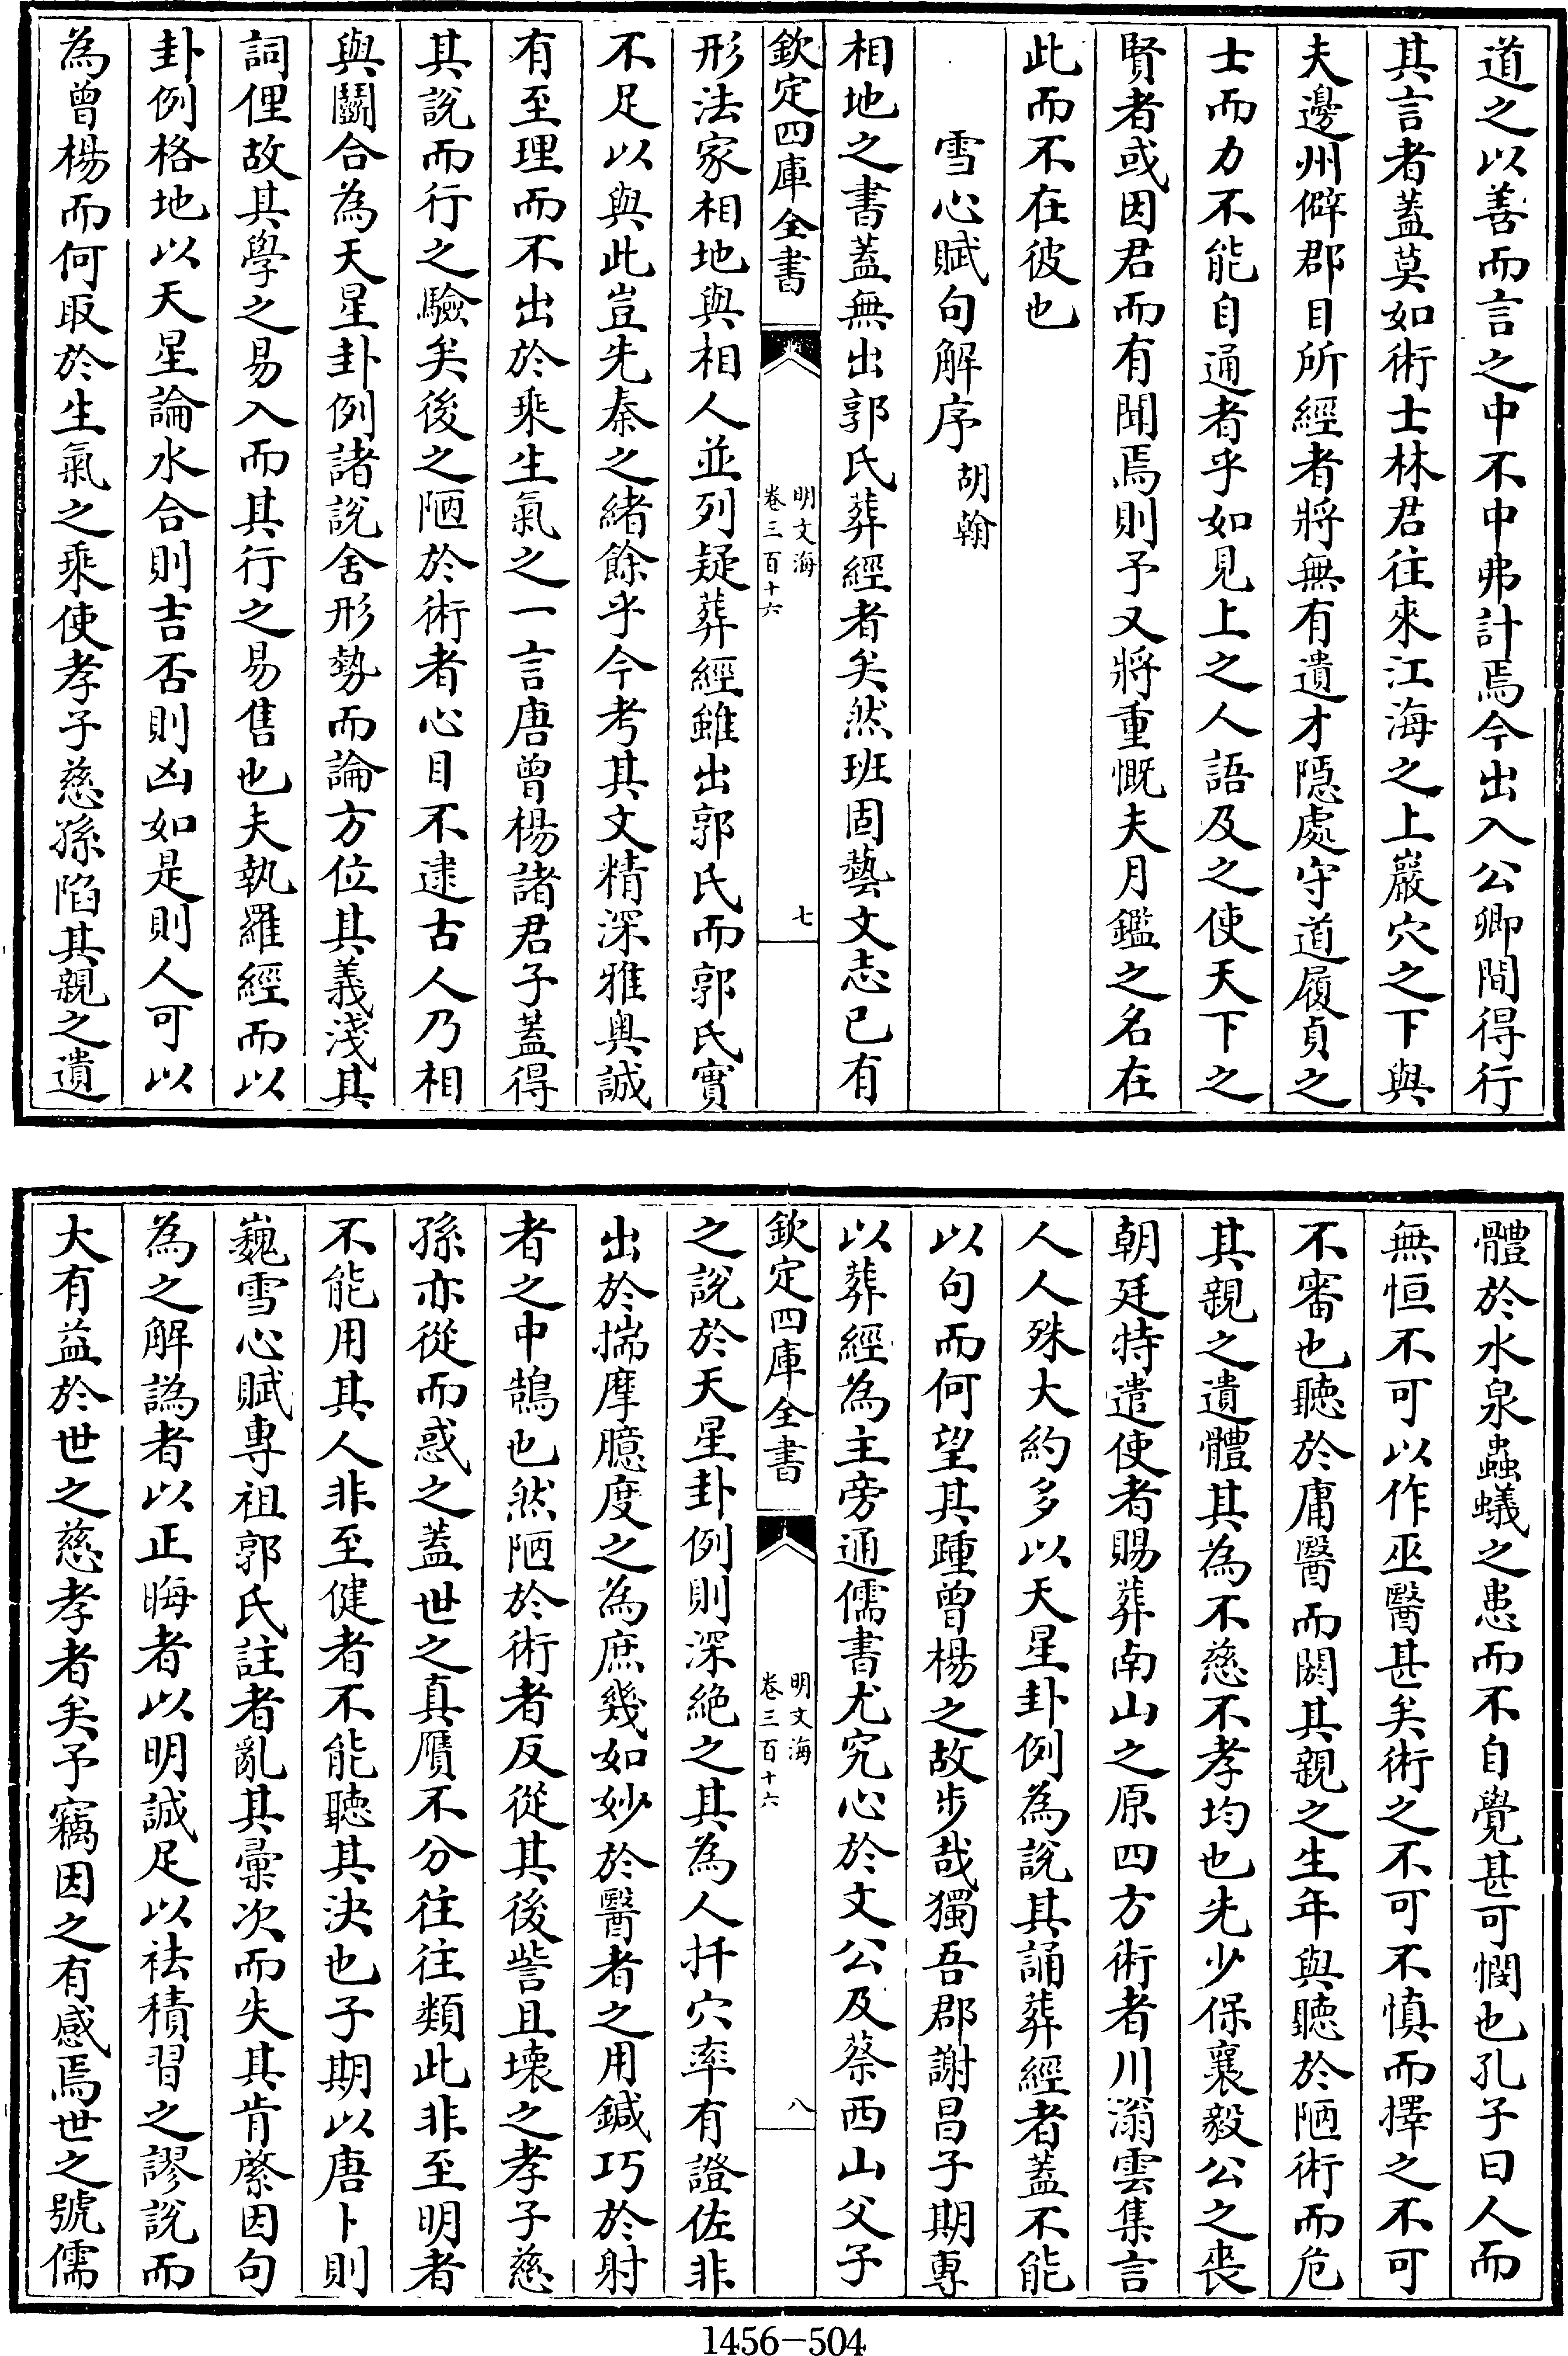 道之以善而言之中不中弗計焉今出入公卿間得行
其言者蓋莫如術士林君往來江海之上巖穴之下與
夫邊州僻郡目所經者將無有遺才隱處守道履貞之
士而力不能自通者乎如見上之人語及之使天下之
賢者或因君而有聞焉則予又將重慨夫月鑑之名在
此而不在彼也
雪心賦句解序 胡翰
相地之書蓋無出郭氏葬經者矣然班固藝文志已有
欽定四庫全書 明文海 卷三百十六 七
形法家相地與相人並列疑葬經雖出郭氏而郭氏實
不足以與此豈先秦之緒餘乎今考其文精深雅奥誠
有至理而不出於乘生氣之一言唐曾楊諸君子蓋得
其說而行之驗矣後之陋於術者心目不逮古人乃相
與鬬合為天星卦例諸說舍形勢而論方位其義淺其
詞俚故其學之易入而其行之易售也夫執羅經而以
卦例格地以天星論水合則吉否則凶如是則人可以
為曾楊而何取於生氣之乘使孝子慈孫陷其親之遺
體於水泉蟲蟻之患而不自覺甚可憫也孔子曰人而
無恒不可以作巫醫甚矣術之不可不慎而擇之不可
不審也聽於庸醫而閼其親之生年與聽於陋術而危
其親之遺體其為不慈不孝均也先少保襄毅公之喪
朝廷特遣使者賜葬南山之原四方術者川滃雲集言
人人殊大約多以天星卦例為說其誦葬經者蓋不能
以句而何望其踵曾楊之故步哉獨吾郡謝昌子期專
以葬經為主旁通儒書尤究心於文公及蔡西山父子
欽定四庫全書 明文海 卷三百十六 八
之說於天星卦例則深絶之其為人扦穴率有證佐非
出於揣摩臆度之為庶幾如妙於醫者之用鍼巧於射
者之中鵠也然陋於術者反從其後訾且壞之孝子慈
孫亦從而惑之蓋世之真贋不分往往類此非至明者
不能用其人非至健者不能聽其決也子期以唐卜則
巍雪心賦專祖郭氏註者亂其彙次而失其肯綮因句
為之解譌者以正晦者以明誠足以袪積習之謬說而
大有益於世之慈孝者矣予竊因之有感焉世之號儒
1456-504